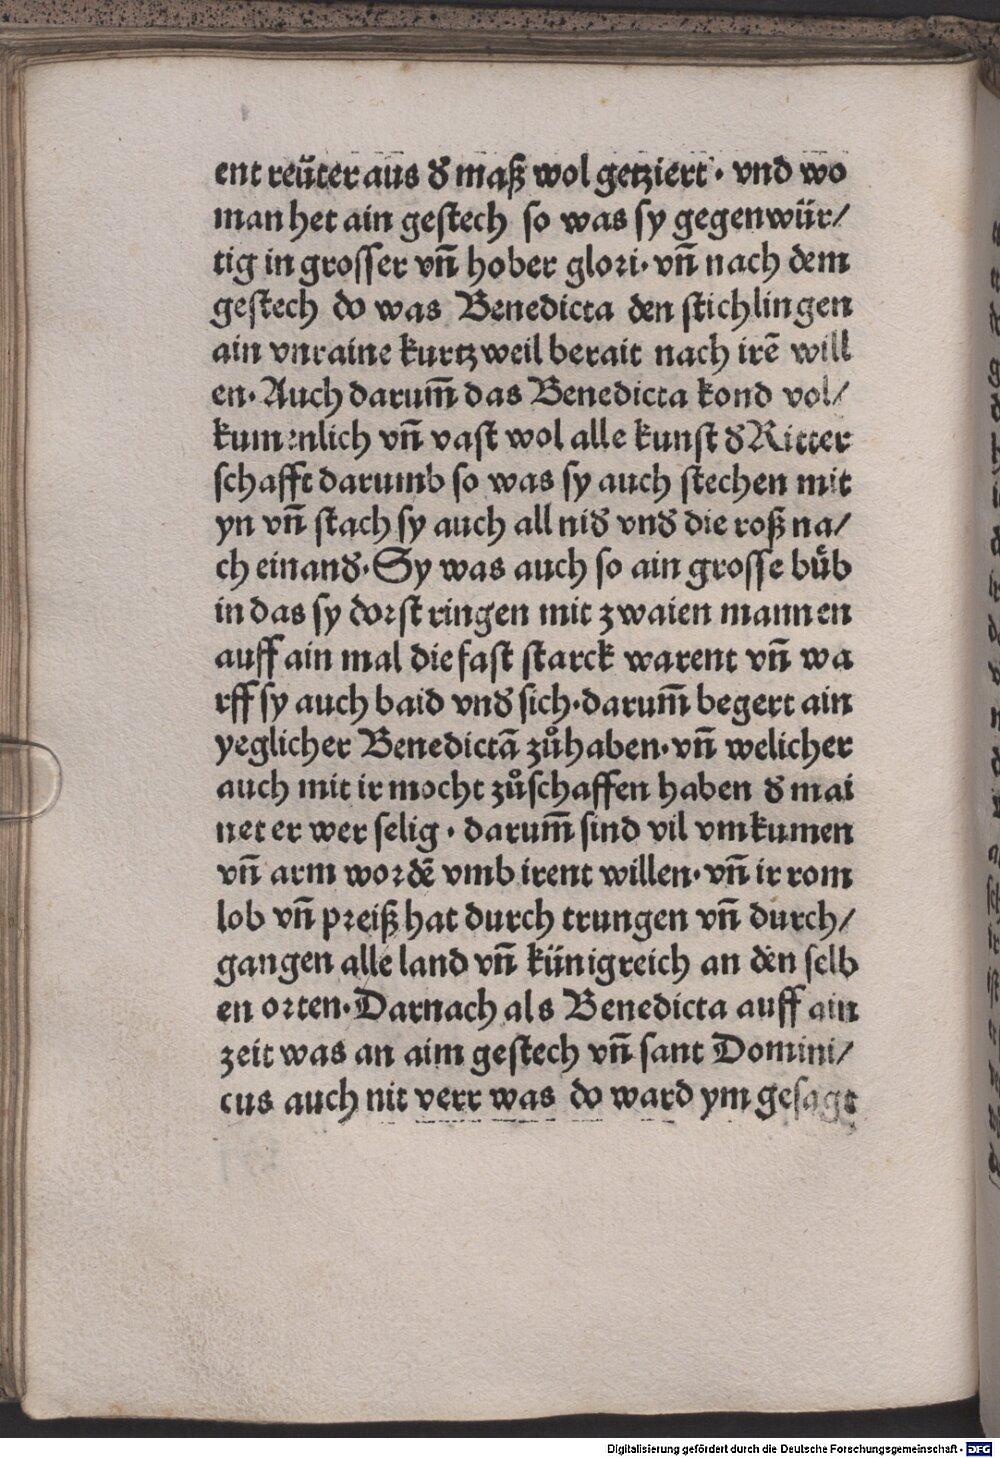 ent reüter aus đ maß wol getziert · vnd wo
man het ain gestech so was sy gegenwür/
tig in grosser vñ hober glori· vñ nach dem
gestech do was Benedicta den stichlingen
ain vnraine kurtzweil berait nach irē will
en· Auch darum̃ das Benedicta kond vol/
kumenlich vñ vast wol alle kunst đ Ritter
schafft darumb so was sy auch stechen mit
yn vñ stach sy auch all niđ vnđ die roß na/
ch einanđ· Sy was auch so ain grosse bůb
in das sy dorst ringen mit zwaien mannen
auff ain mal die fast starck warent vñ wa
rff sy auch baid vnđ sich· darum̃ begert ain
yeglicher Benedictā zůhaben· vñ welicher
auch mit ir mocht zůschaffen haben đ mai
net er wer selig · darum̃ sind vil vmkumen
vñ arm wordē vmb irent willen· vñ ir rom
lob vñ preiß hat durch trungen vñ durch/
gangen alle land vñ künigreich an den selb
en orten· Darnach als Benedicta auff ain
zeit was an aim gestech vñ sant Domini/
cus auch nit verr was do ward ym gesagt
Digitalisierung gefördert durch die Deutsche Forschungsgemeinschaft - DFG